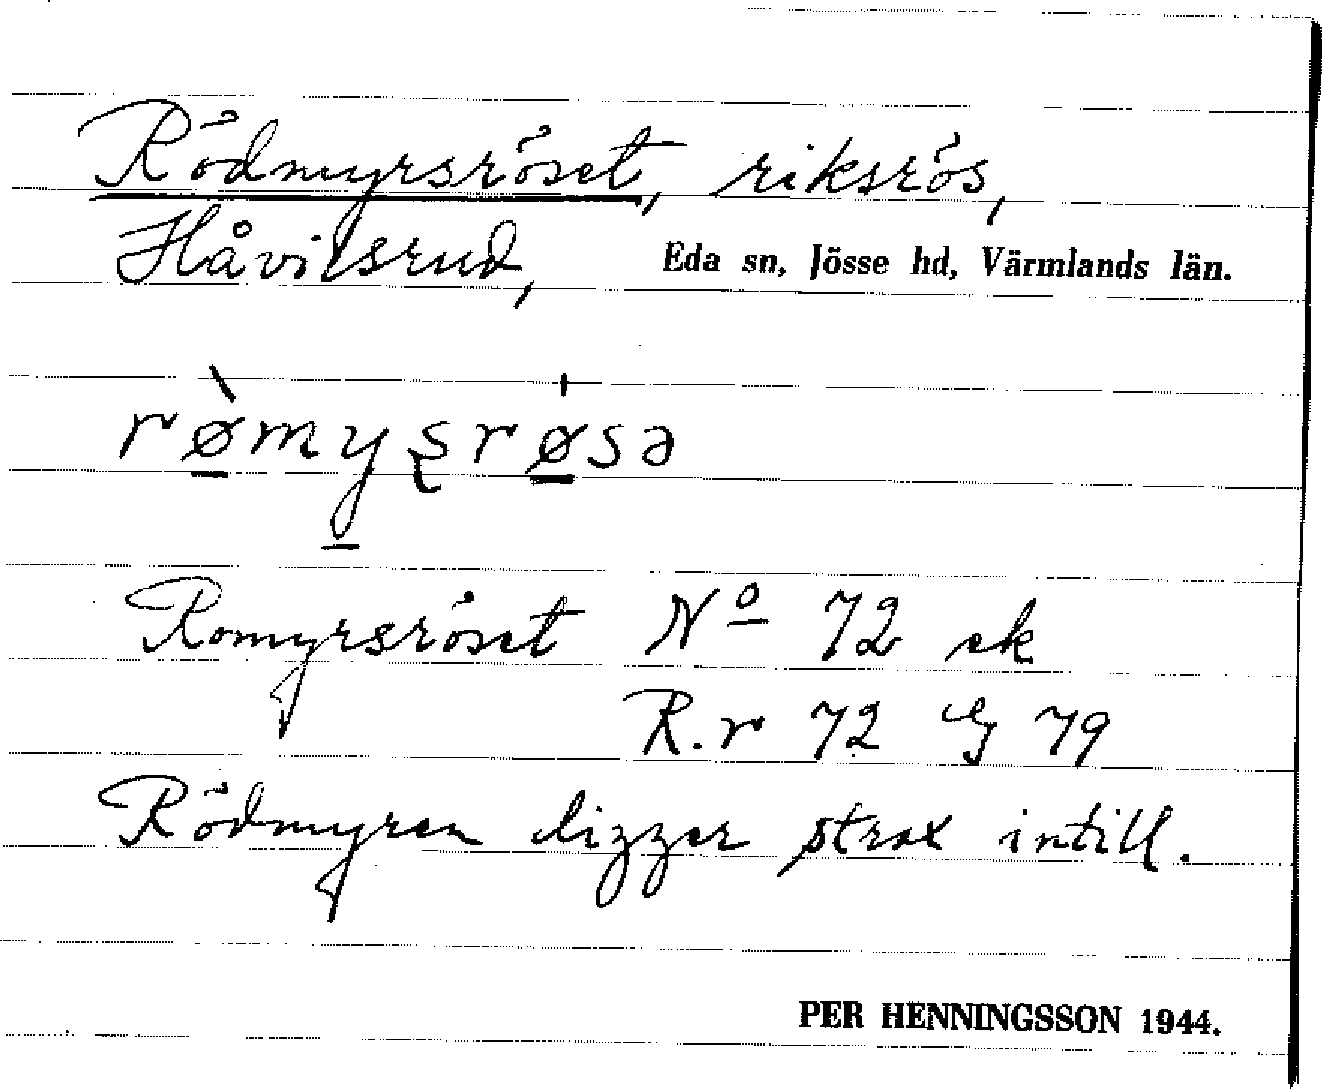 Rödmyrsröset, riksrös,
Håvilsrud, Eda sn, Jösse hd, Värmlands län.
rø̀mysrøsə
Romyrsröset Nº 72 ek
R.r 72 Eg 79
Rödmyren ligger strax intill.
PER HENNINGSSON 1944.